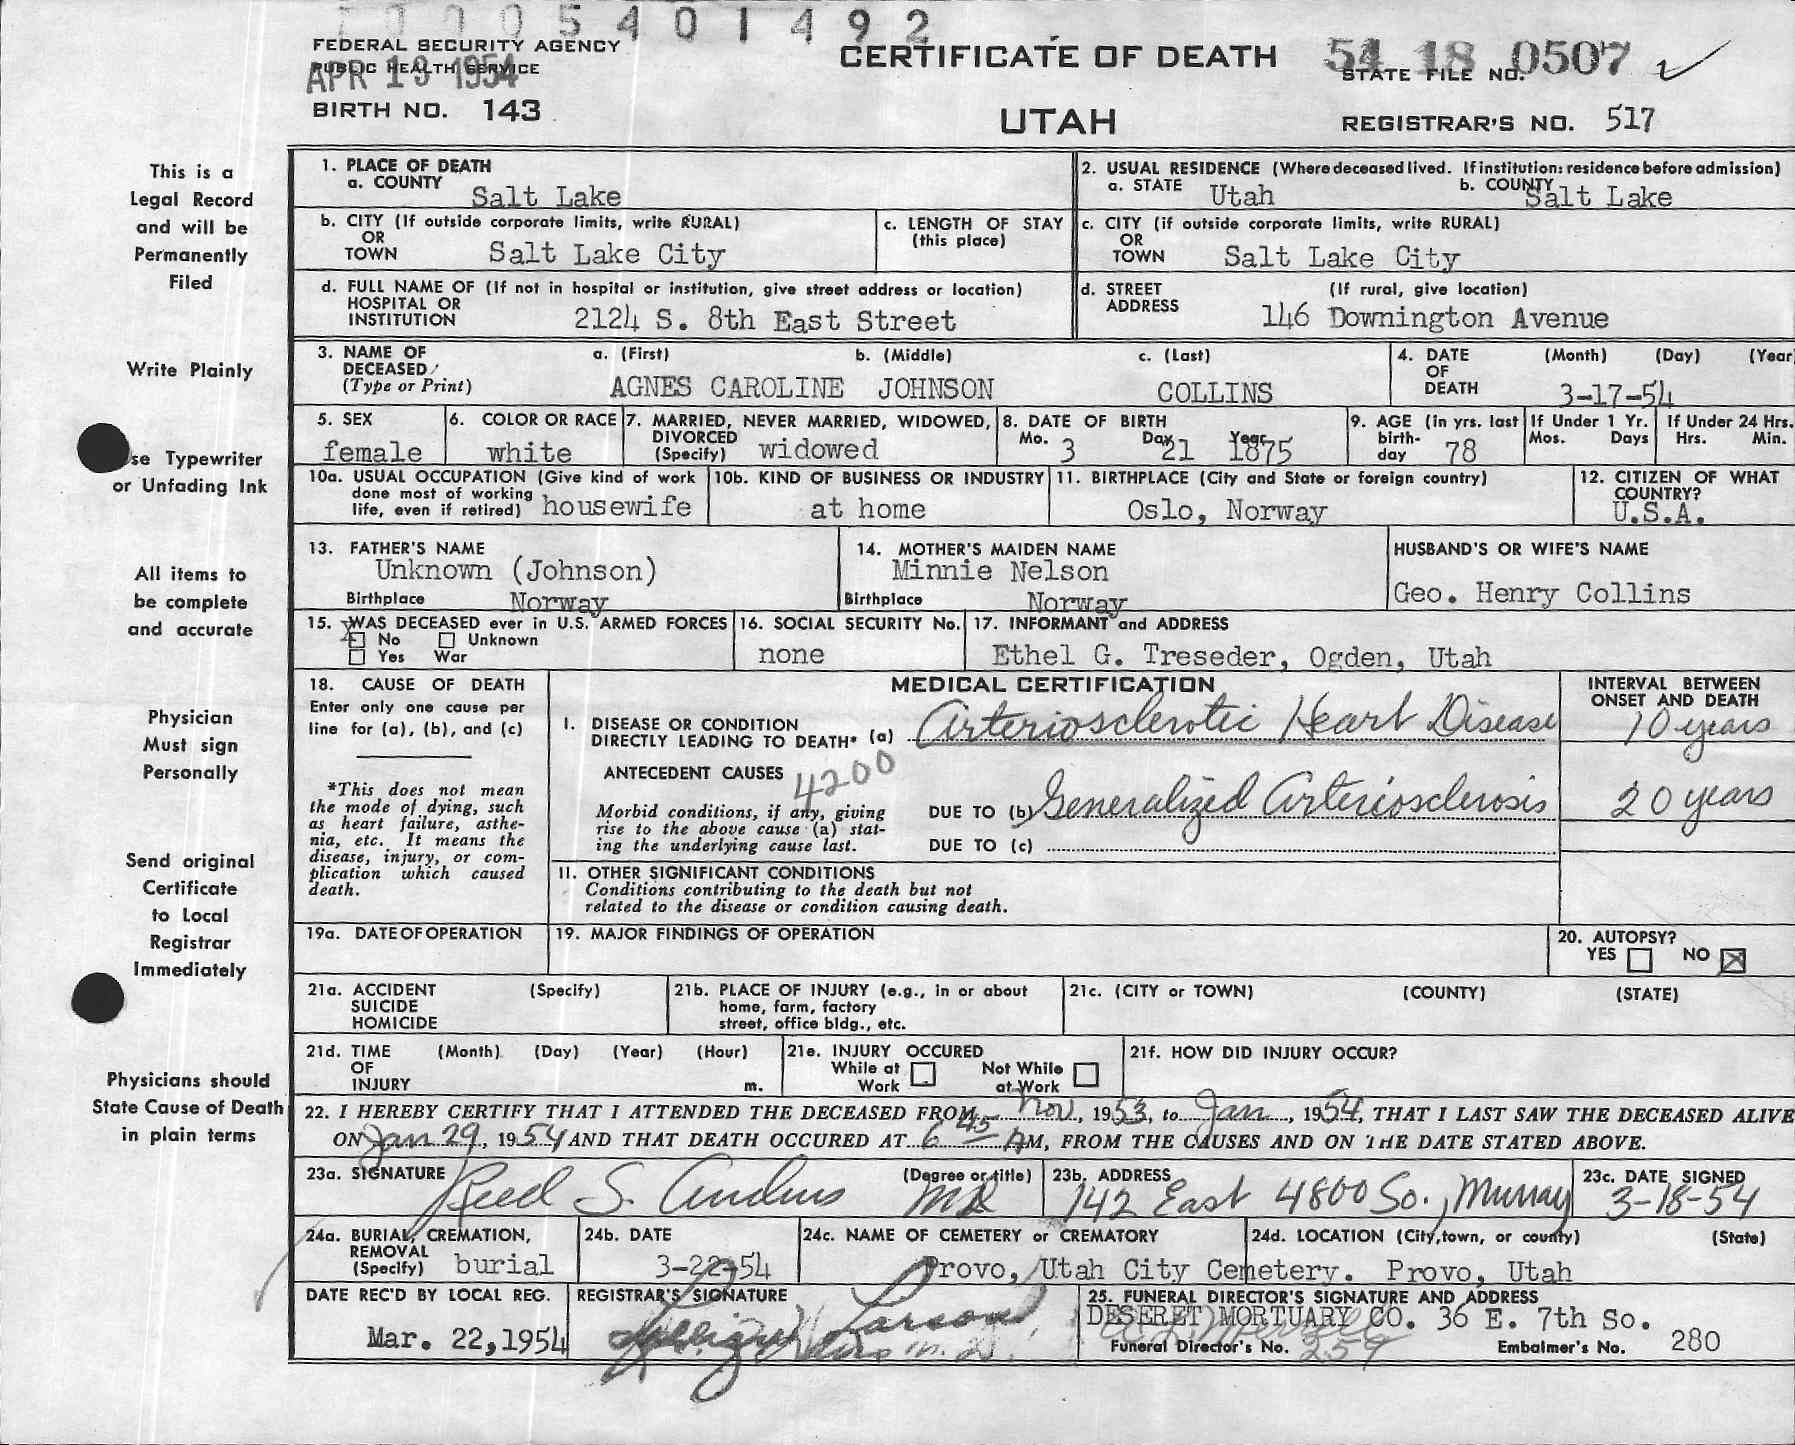 70005401492
FEDERAL SECURITY AGENCY
PUBLIC HEALTH SERVICE
APR 19 1954
BIRTH NO. 143
CERTIFICATE OF DEATH
UTAH
54 18 0507
STATE FILE NO.
REGISTRAR'S NO. 517
This is a
Legal Record
and will be
Permanently
Filed
Write Plainly
se Typewriter
or Unfading Ink
All items to
be complete
and accurate
Physician
Must sign
Personally
Send original
Certificate
to Local
Registrar
Immediately
Physicians should
State Cause of Death
in plain terms
1. PLACE OF DEATH
a. COUNTY Salt Lake
2. USUAL RESIDENCE (Where deceased lived. If institution: residence before admission)
a. STATE Utah b. COUNTY Salt Lake
b. CITY (If outside corporate limits, write RURAL)
OR
TOWN Salt Lake City
c. LENGTH OF STAY
(this place)
c. CITY (if outside corporate limits, write RURAL)
OR
TOWN Salt Lake City
d. FULL NAME OF (If not in hospital or institution, give street address or location)
HOSPITAL OR
INSTITUTION 2124 S. 8th East Street
d. STREET (If rural, give location)
ADDRESS 146 Downington Avenue
3. NAME OF DECEASED (Type or Print)
a. (First) b. (Middle) c. (Last)
AGNES CAROLINE JOHNSON COLLINS
4. DATE OF DEATH (Month) (Day) (Year)
3-17-54
5. SEX
female
6. COLOR OR RACE
white
7. MARRIED, NEVER MARRIED, WIDOWED,
DIVORCED
(Specify) widowed
8. DATE OF BIRTH
Mo. 3 Day 21 Year 1875
9. AGE (in yrs. last
birth-
day 78
If Under 1 Yr.
Mos. Days
If Under 24 Hrs.
Hrs. Min.
10a. USUAL OCCUPATION (Give kind of work
done most of working
life, even if retired) housewife
10b. KIND OF BUSINESS OR INDUSTRY
at home
11. BIRTHPLACE (City and State or foreign country)
Oslo, Norway
12. CITIZEN OF WHAT
COUNTRY?
U.S.A.
13. FATHER'S NAME
Unknown (Johnson)
Birthplace Norway
14. MOTHER'S MAIDEN NAME
Minnie Nelson
Birthplace Norway
HUSBAND'S OR WIFE'S NAME
Geo. Henry Collins
15. WAS DECEASED ever in U.S. ARMED FORCES
X No Unknown
Yes War
16. SOCIAL SECURITY No.
none
17. INFORMANT and ADDRESS
Ethel G. Treseder, Ogden, Utah
18. CAUSE OF DEATH
Enter only one cause per
line for (a), (b), and (c)
*This does not mean
the mode of dying, such
as heart failure, asthe-
nia, etc. It means the
disease, injury, or com-
plication which caused
death.
MEDICAL CERTIFICATION
INTERVAL BETWEEN
ONSET AND DEATH
I. DISEASE OR CONDITION
DIRECTLY LEADING TO DEATH* (a) Arteriosclerotic Heart Disease 10 years
ANTECEDENT CAUSES 4200
Morbid conditions, if any, giving
rise to the above cause (a) stat-
ing the underlying cause last.
DUE TO (b) Generalized Arteriosclerosis 20 years
DUE TO (c)
II. OTHER SIGNIFICANT CONDITIONS
Conditions contributing to the death but not
related to the disease or condition causing death.
19a. DATE OF OPERATION
19. MAJOR FINDINGS OF OPERATION
20. AUTOPSY?
YES NO X
21a. ACCIDENT (Specify)
SUICIDE
HOMICIDE
21b. PLACE OF INJURY (e.g., in or about
home, farm, factory
street, office bldg., etc.
21c. (CITY or TOWN) (COUNTY) (STATE)
21d. TIME (Month) (Day) (Year) (Hour)
OF
INJURY m.
21e. INJURY OCCURED
While at Work Not While at Work
21f. HOW DID INJURY OCCUR?
22. I HEREBY CERTIFY THAT I ATTENDED THE DECEASED FROM Nov, 1953, to Jan, 1954, THAT I LAST SAW THE DECEASED ALIVE
ON Jan 29, 1954 AND THAT DEATH OCCURED AT 6 45 AM, FROM THE CAUSES AND ON THE DATE STATED ABOVE.
23a. SIGNATURE (Degree or title)
Reed S. MD
23b. ADDRESS
142 East 4800 So., Murray
23c. DATE SIGNED
3-18-54
24a. BURIAL, CREMATION,
REMOVAL
(Specify) burial
24b. DATE
3-22-54
24c. NAME OF CEMETERY or CREMATORY
Provo, Utah City Cemetery.
24d. LOCATION (City, town, or county) (State)
Provo, Utah
DATE REC'D BY LOCAL REG.
Mar. 22, 1954
REGISTRAR'S SIGNATURE
Larson
M.D.
25. FUNERAL DIRECTOR'S SIGNATURE AND ADDRESS
DESERET MORTUARY CO. 36 E. 7th So.
Funeral Director's No. 259 Embalmer's No. 280